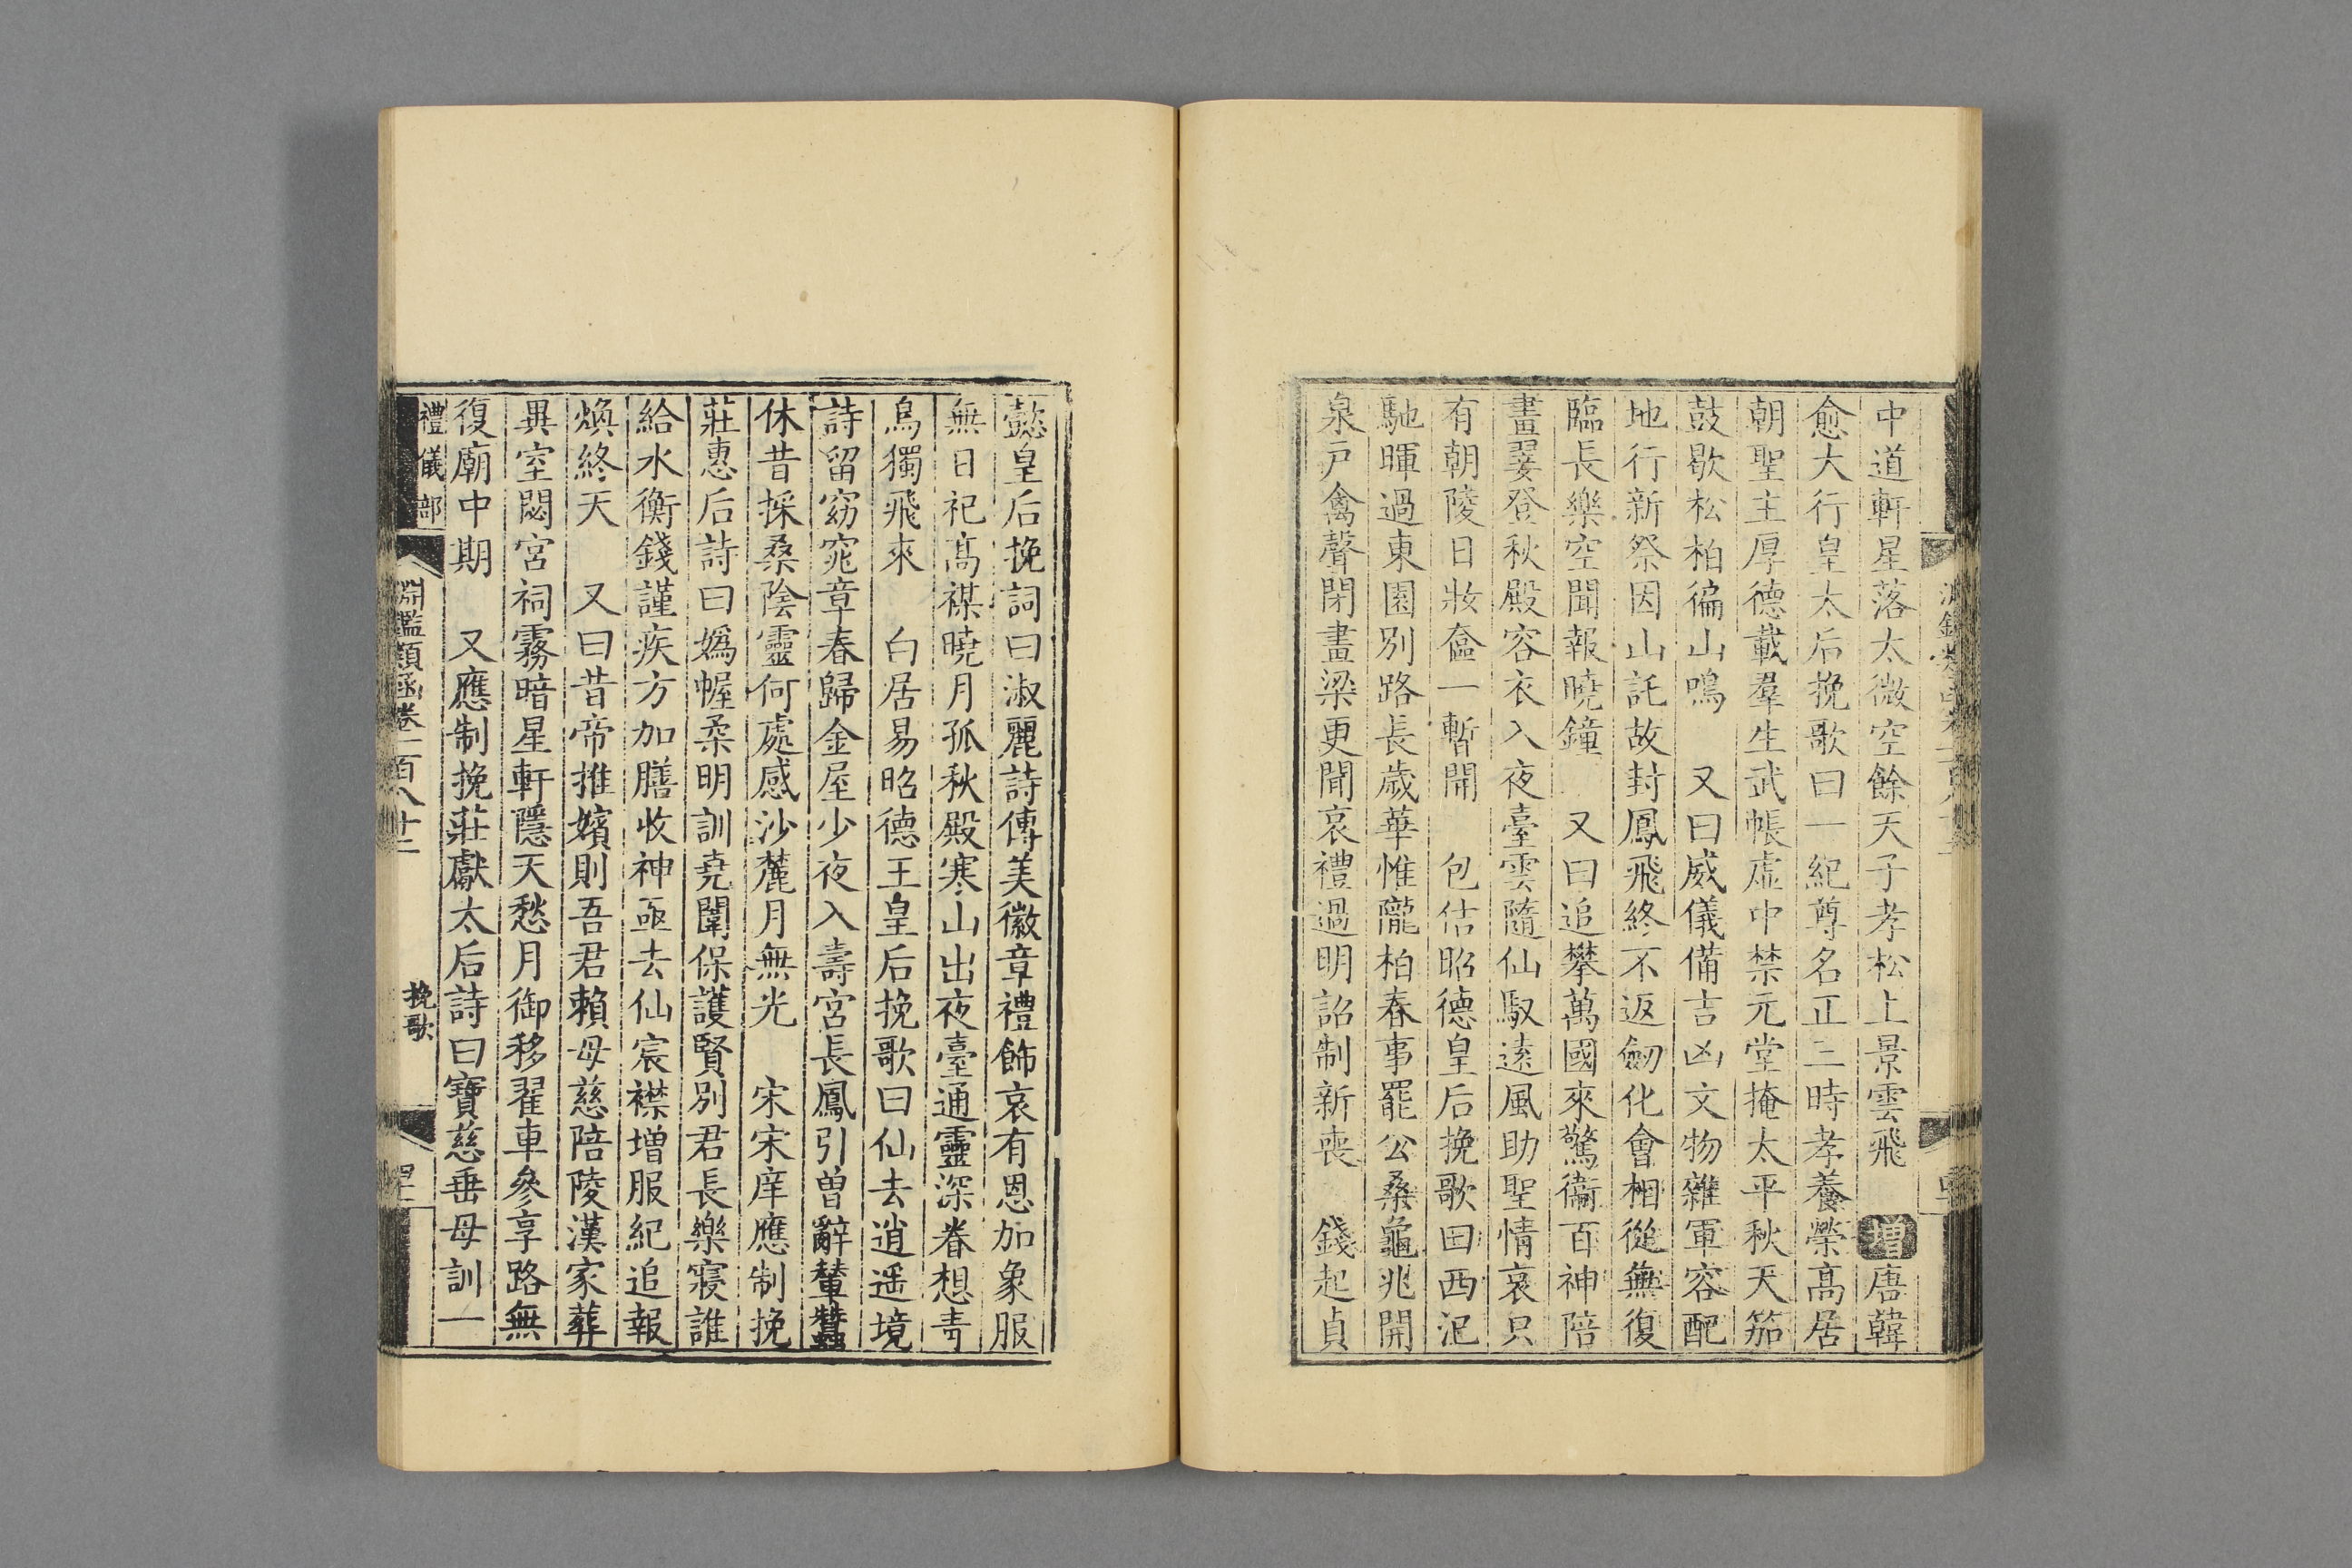 中道軒星落太微空餘天子孝松上景雲飛 增唐韓
愈大行皇太后挽歌曰一紀尊名正三時孝養榮髙居
朝聖主厚德載羣生武帳虛中禁元堂掩太平秋天笳
鼓歇松柏徧山鳴 又曰威儀備吉凶文物雜軍容配
地行新祭因山託故封鳳飛終不返劒化會相從無復
臨長樂空聞報曉鐘 又曰追攀萬國來驚衞百神陪
畫翣登秋殿容衣入夜臺雲隨仙馭遠風助聖情哀只
有朝陵日妝奩一暫開 包佶昭德皇后挽歌曰西汜
馳暉過東園别路長歲華惟隴柏春事罷公桑龜兆開
泉戸禽聲閉畫梁更聞哀禮過明詔制新喪 錢起貞
懿皇后挽詞曰淑麗詩傳美徽章禮飾哀有恩加象服
無日祀髙禖曉月孤秋殿寒山出夜臺通靈深眷想青
鳥獨飛來 白居易昭德王皇后挽歌曰仙去逍遥境
詩留窈窕章春歸金屋少夜入壽宮長鳳引曽辭輦蠶
休昔採桑陰靈何處感沙麓月無光 宋宋庠應制挽
莊惠后詩曰嬀幄柔明訓堯闈保護賢别君長樂寢誰
給水衡錢謹疾方加膳收神亟去仙宸襟增服紀追報
煥終天 又曰昔帝推嬪則吾君賴母慈陪陵漢家葬
異室閟宮祠霧暗星軒隱天愁月御移翟車參享路無
復廟中期 又應制挽莊獻太后詩曰寶慈垂母訓一
禮儀部 淵鑑類函卷一百八十二 挽歌